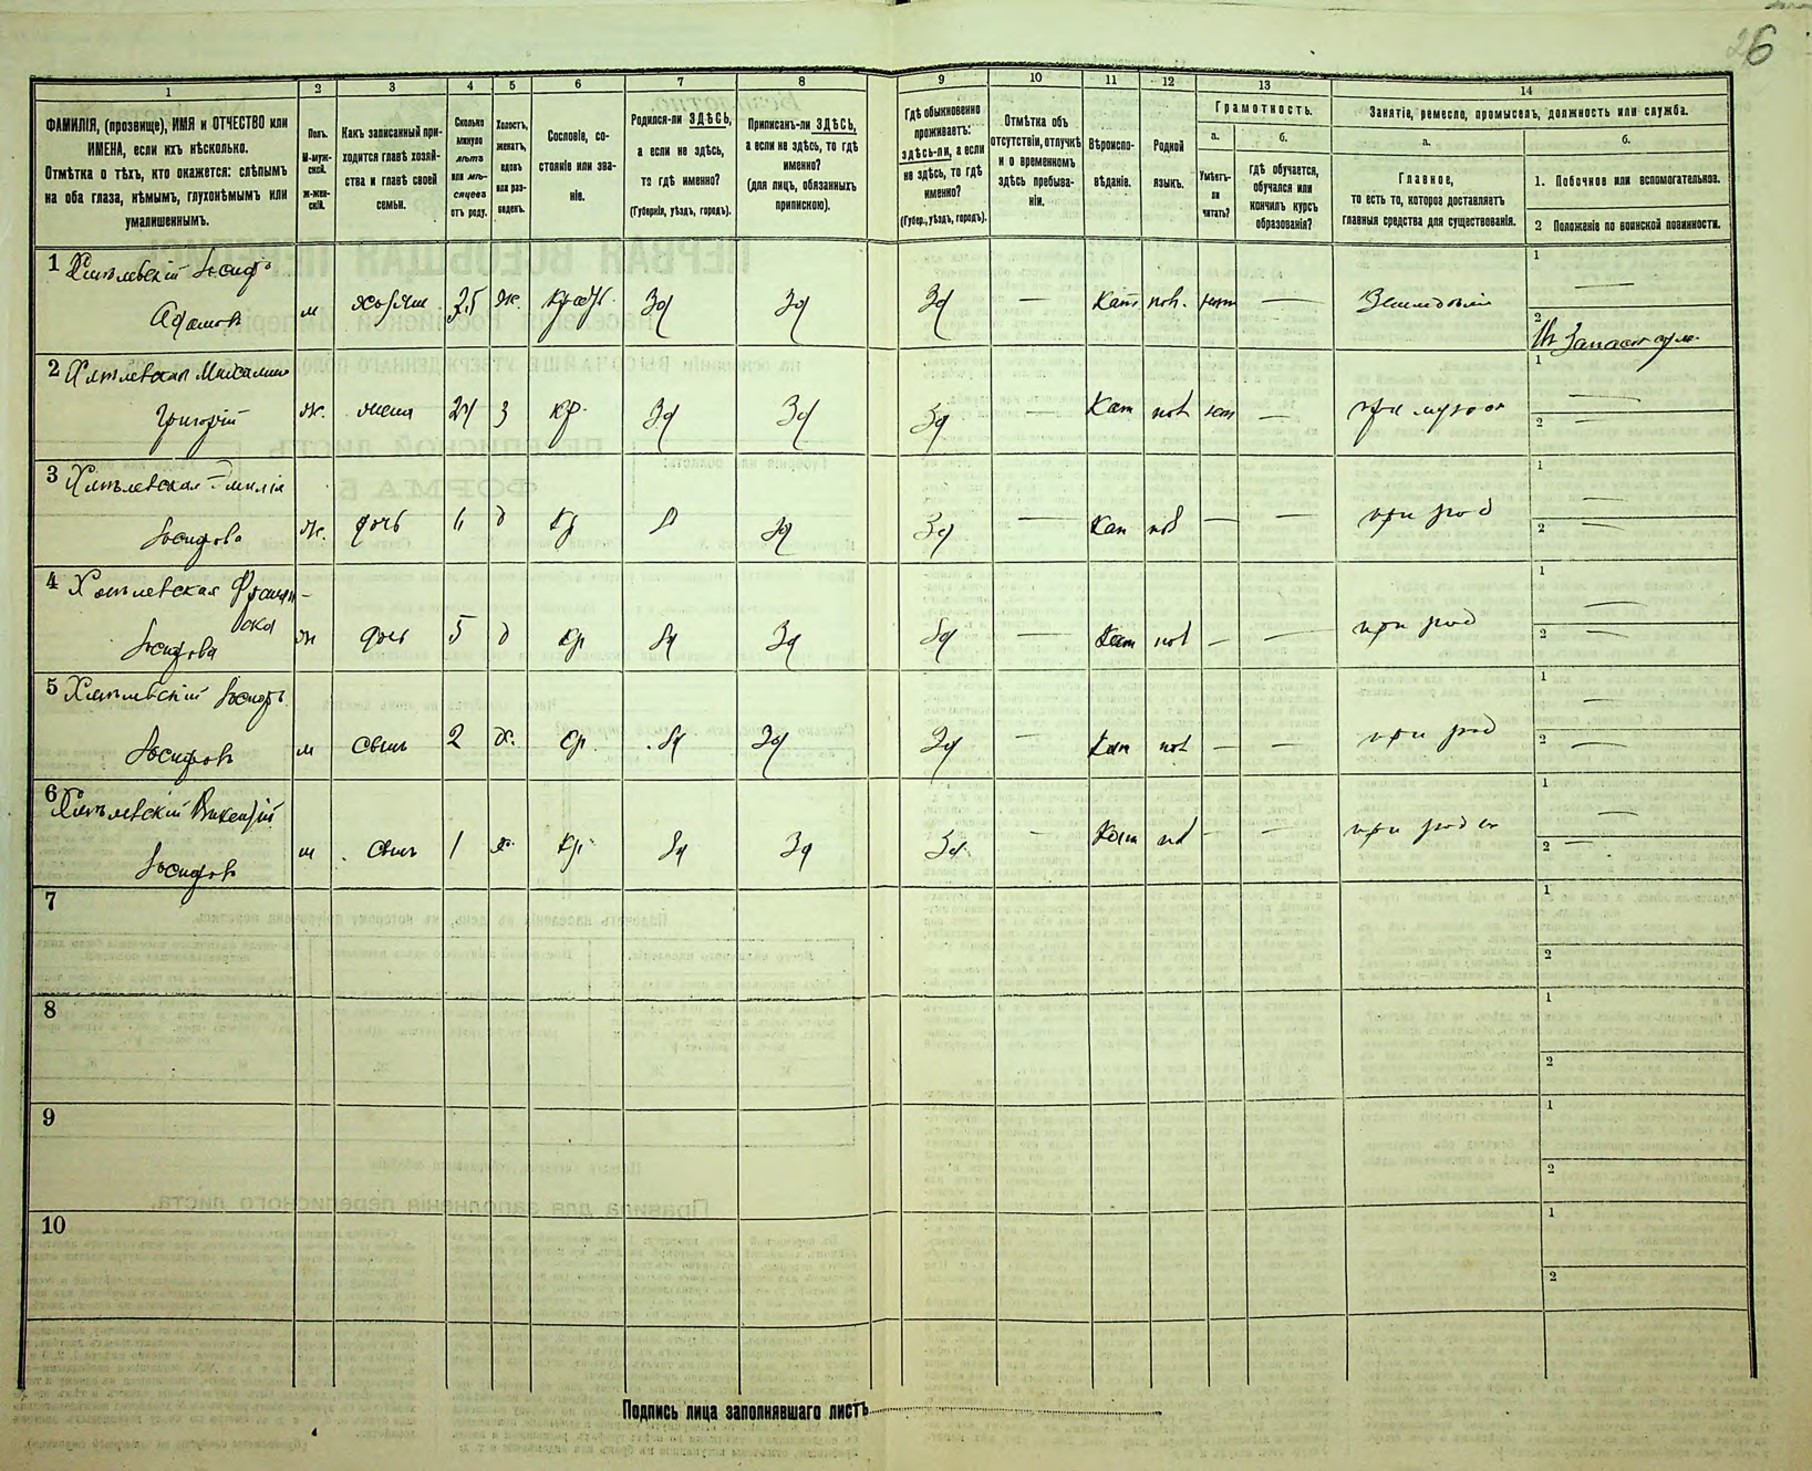 26
1 2 3 4 5 6 7 8 9 10 11 12 13 14
ФАМИЛІЯ, (прозвище), ИМЯ и ОТЧЕСТВО или
ИМЕНА, если ихъ нѣсколько.
Отмѣтка о тѣхъ, кто окажется: слѣпымъ
на оба глаза, нѣмымъ, глухонѣмымъ или
умалишеннымъ.
Полъ.
М-муж-
ской.
Ж-жен-
скій.
Какъ записанный при-
ходится главѣ хозяй-
ства и главѣ своей
семьи.
Сколько
минуло
лѣтъ
или мѣ-
сяцевъ
отъ роду.
Холостъ,
женатъ,
вдовъ
или раз-
веденъ.
Сословіе, со-
стояніе или зва-
ніе.
Родился-ли ЗДѢСЬ,
а если не здѣсь,
то гдѣ именно?
(Губернія, уѣздъ, городъ).
Приписанъ-ли ЗДѢСЬ,
а если не здѣсь, то гдѣ
именно?
(для лицъ, обязанныхъ
припискою).
Гдѣ обыкновенно
проживаетъ:
здѣсь-ли, а если
не здѣсь, то гдѣ
именно?
(Губер., уѣздъ, городъ).
Отмѣтка объ
отсутствіи, отлучкѣ
и о временномъ
здѣсь пребыва-
ніи.
Вѣроиспо-
вѣданіе.
Родной
языкъ.
Грамотность.
а. б.
Умѣетъ-
ли
читать?
гдѣ обучается,
обучался или
кончилъ курсъ
образованія?
Занятіе, ремесло, промыселъ, должность или служба.
а. б.
Главное,
то есть то, которое доставляетъ
главныя средства для существованія.
1. Побочное или вспомогательное.
2 Положеніе по воинской повинности.
1 Іосифъ
Адамовъ м хозяин 35 ж. Зд Зд Зд — Кат — — 1 —
2
2
Григорій ж. жена 3 кр. Зд Зд Зд — Кат — 1 — 2 —
3 Эмилія
Іосифова ж. дочь д кр Зд Зд — Кат — — при род 1 — 2 —
4
Іосифова ж дочь 5 д кр Зд Зд Зд — Кат — — при род 1 — 2 —
5 Іосифъ
Іосифовъ м сынъ 2 х. кр. Зд Зд Зд — Кат — — при род 1 — 2 —
6 Викентій
Іосифовъ м сынъ 1 х. кр. Зд Зд Зд — Кат — — при род 1 — 2 —
7 1
2
8 1
2
9 1
2
10 1
2
Подпись лица заполнявшаго листъ